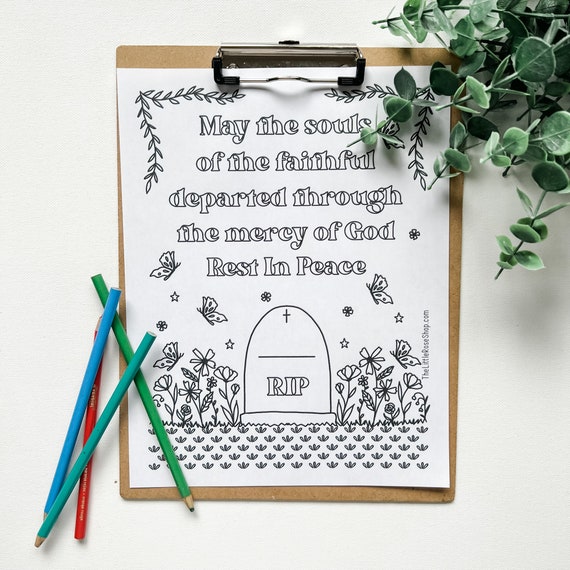 May the souls
of the faithful
departed through
the mercy of God
Rest In Peace
RIP
TheLittleRoseShop.com